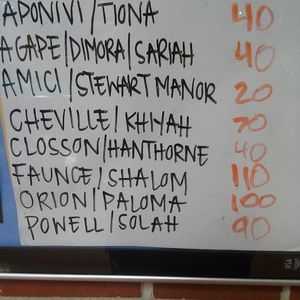 APONIVI/TIONA 40
AGAPE/DIMORA/SARIAH 40
AMICI/STEWART MANOR 20
CHEVILLE/KHIYAH 70
CLOSSON/HANTHORNE 40
FAUNCE/SHALOM 110
ORION/PALOMA 100
POWELL/SOLAH 90